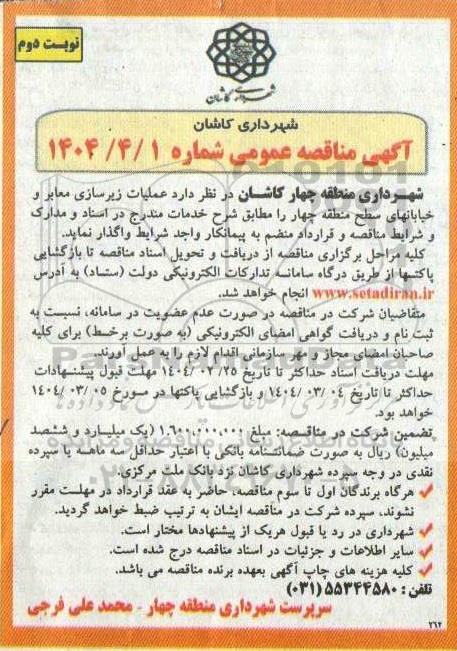 نوبت دوم
شهرداری کاشان
شهرداری کاشان
آگهی مناقصه عمومی شماره ۱ /۴/ ۱۴۰۴
شهرداری منطقه چهار کاشان در نظر دارد عملیات زیرسازی معابر و
خیابانهای سطح منطقه چهار را مطابق شرح خدمات مندرج در اسناد و مدارک
و شرایط مناقصه و قرارداد منضم به پیمانکار واجد شرایط واگذار نماید.
کلیه مراحل برگزاری مناقصه از دریافت و تحویل اسناد مناقصه تا بازگشایی
پاکتها از طریق درگاه سامانه تدارکات الکترونیکی دولت (ستاد) به آدرس
www.setadiran.ir انجام خواهد شد.
متقاضیان شرکت در مناقصه در صورت عدم عضویت در سامانه، نسبت به
ثبت نام و دریافت گواهی امضای الکترونیکی (به صورت برخط) برای کلیه
صاحبان امضای مجاز و مهر سازمانی اقدام لازم را به عمل آورند.
مهلت دریافت اسناد حداکثر تا تاریخ ۱۴۰۴/۰۲/۲۵ مهلت قبول پیشنهادات
حداکثر تا تاریخ ۱۴۰۴/۰۳/۰۴ و بازگشایی پاکتها در مورخ ۱۴۰۴/۰۳/۰۵
خواهد بود.
تضمین شرکت در مناقصه: مبلغ ۱.۶۰۰.۰۰۰.۰۰۰ (یک میلیارد و ششصد
میلیون) ریال به صورت ضمانتنامه بانکی با اعتبار حداقل سه ماهه یا سپرده
نقدی در وجه سپرده شهرداری کاشان نزد بانک ملت مرکزی.
✓ هرگاه برندگان اول تا سوم مناقصه، حاضر به عقد قرارداد در مهلت مقرر
نشوند، سپرده شرکت در مناقصه ایشان به ترتیب ضبط خواهد گردید.
✓ شهرداری در رد یا قبول هریک از پیشنهادها مختار است.
✓ سایر اطلاعات و جزئیات در اسناد مناقصه درج شده است.
✓ کلیه هزینه های چاپ آگهی بعهده برنده مناقصه می باشد.
تلفن: ۵۵۳۴۴۵۸۰ (۰۳۱)
سرپرست شهرداری منطقه چهار - محمد علی فرجی
۲۶۲